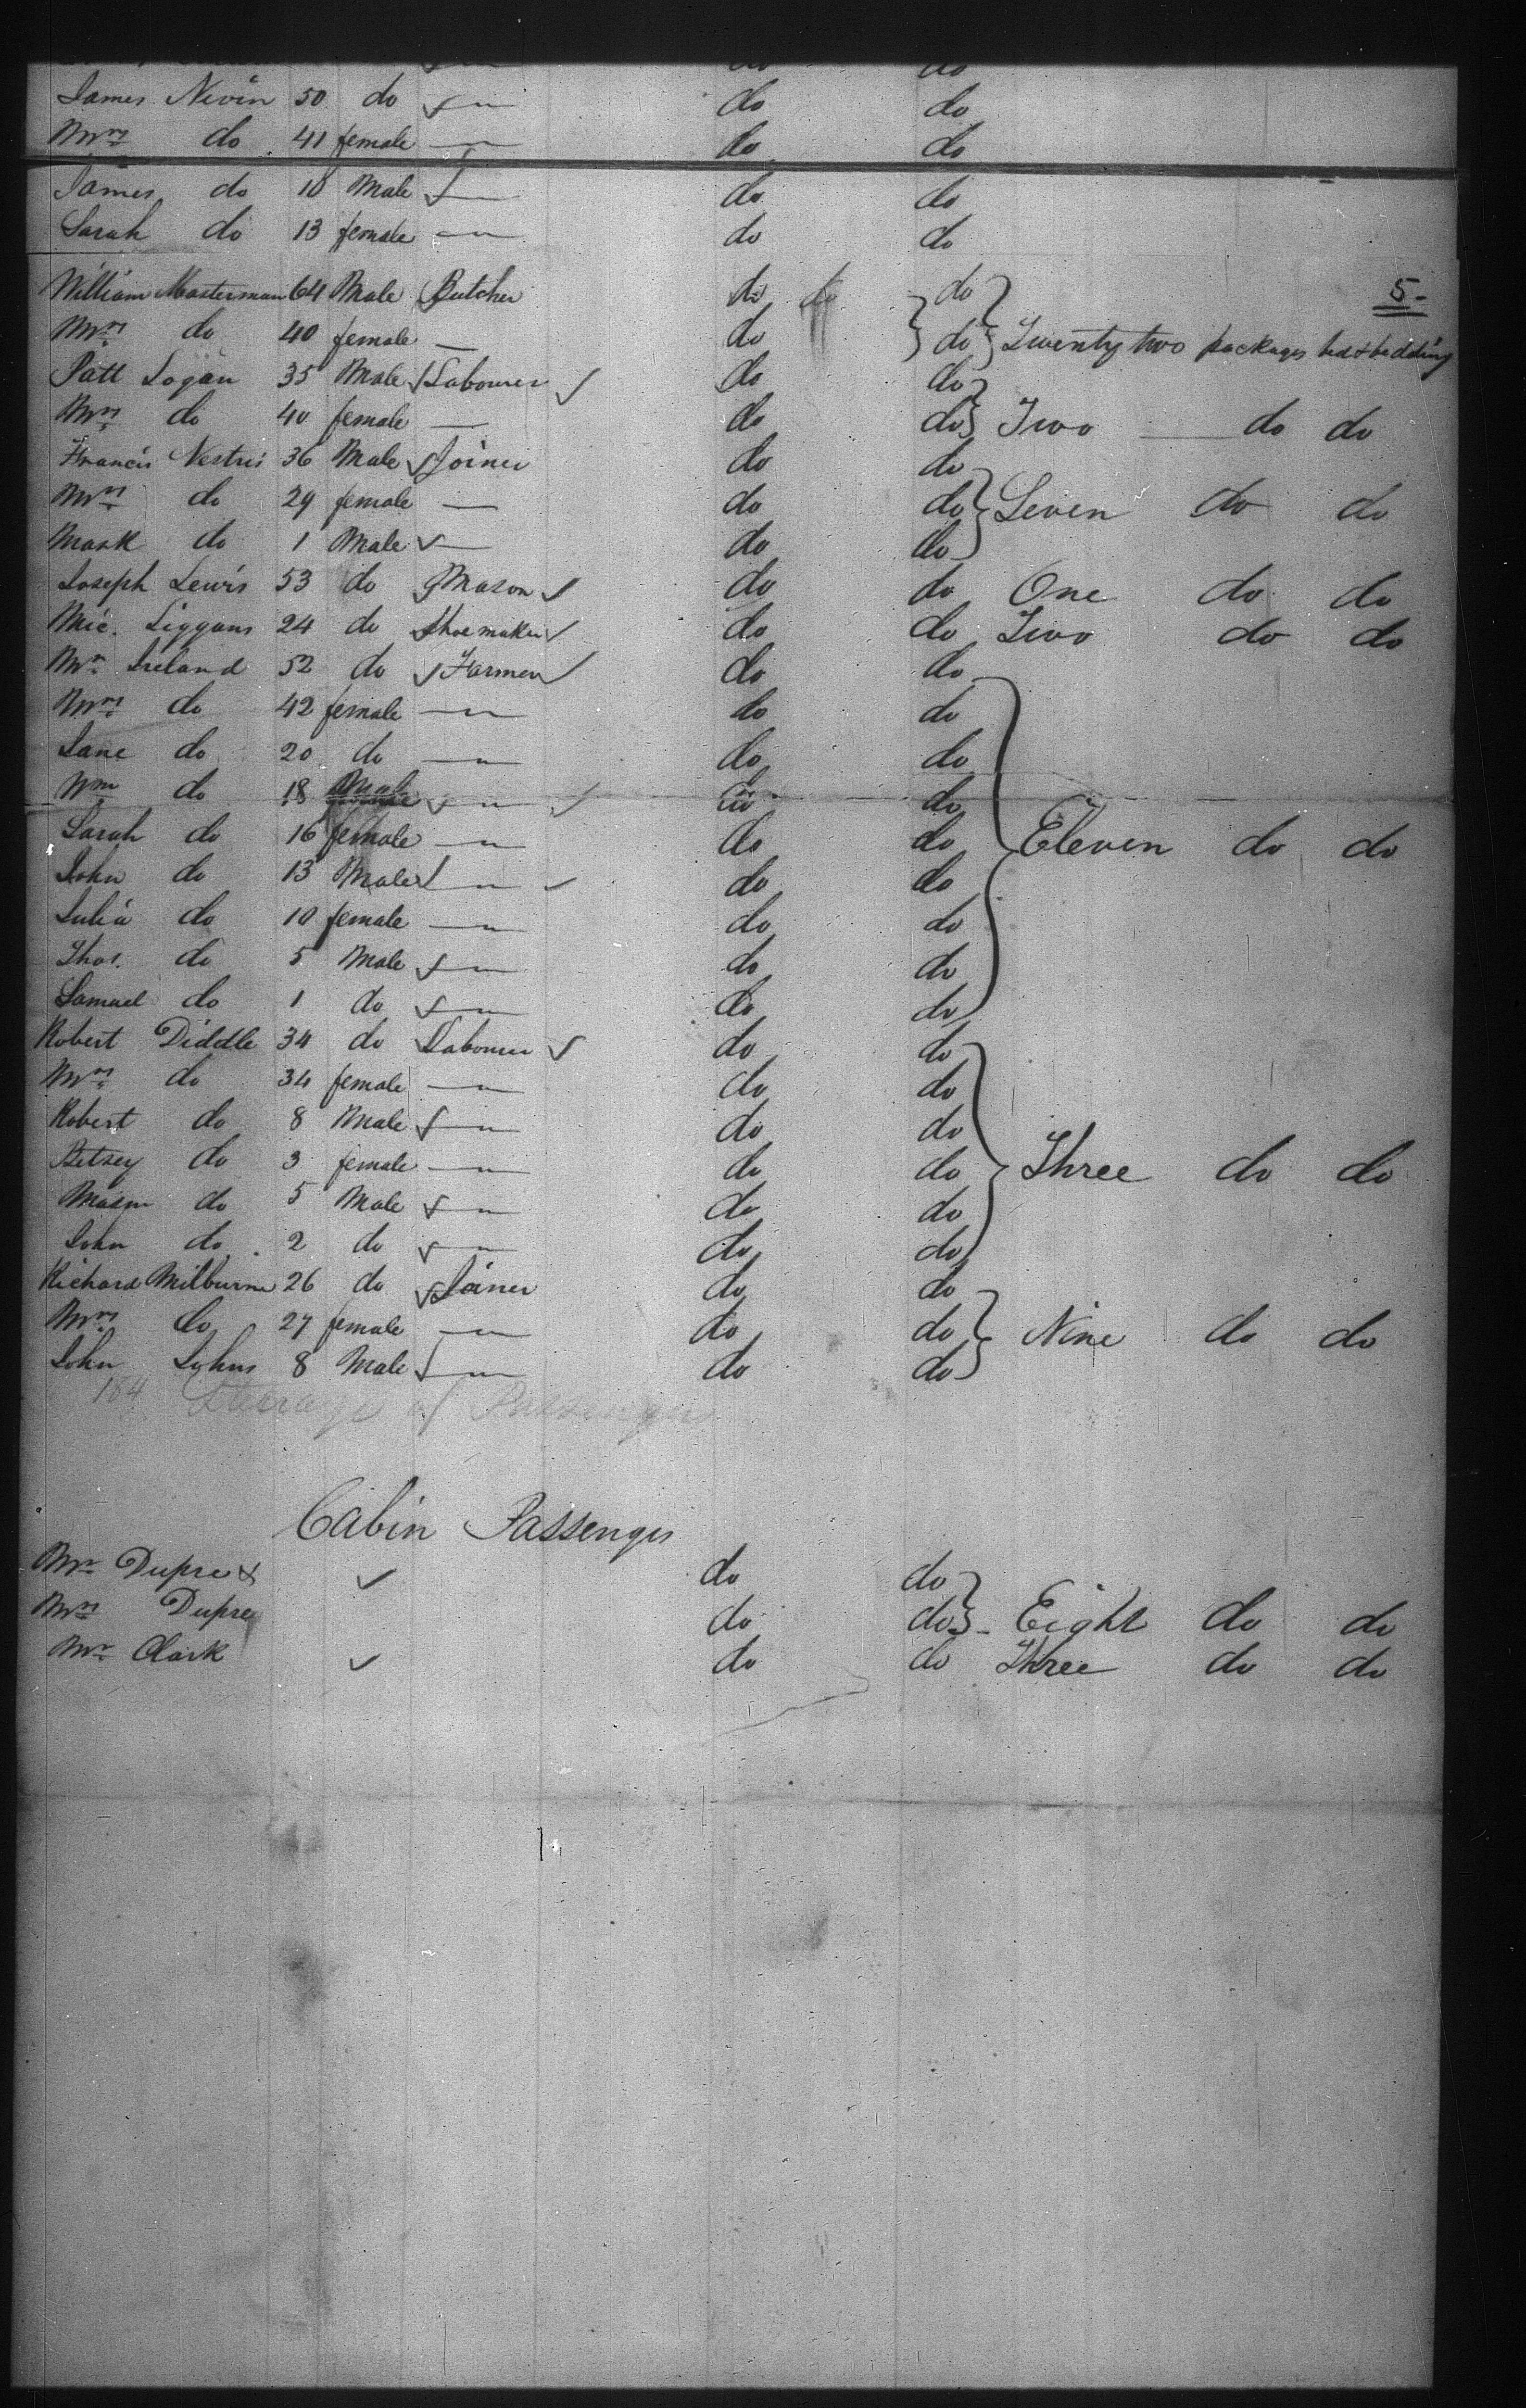 James Nevin 50 do do do
Mrs do 41 female do do
James do 10 Male do do
Sarah do 13 female do do
5-
William Masterman 64 Male Butcher do do do
Mrs do 40 female do do Twenty two packages bed & bedding
Patt Logan 35 Male Labourer do do
Mrs do 40 female do do Two do do
Francis 36 Male Joiner do do
Mrs do 29 female do do Seven do do
Mark do 1 Male do do
Joseph Lewis 53 do Mason do do One do do
Mic. Liggans 24 do Shoemaker do do Two do do
Mr Ireland 52 do Farmer do do
Mrs do 42 female do do
Jane do 20 do do do
Wm do 18 Male do do
Sarah do 16 female do do Eleven do do
John do 13 Male do do
Julia do 10 female do do
Thos. do 5 Male do do
Samuel do 1 do do do
Robert Diddle 34 do Labourer do do
Mrs do 34 female do do
Robert do 8 Male do do
Betsey do 3 female do do Three do do
do 5 Male do do
John do 2 do do do
Richard Milburne 26 do Joiner do do
Mrs do 27 female do do Nine do do
John Johns 8 Male do do
184 Steerage of Passengers
Cabin Passengers
Mr Dupre & do do
Mrs Dupre do do Eight do do
Mr Clark do do Three do do